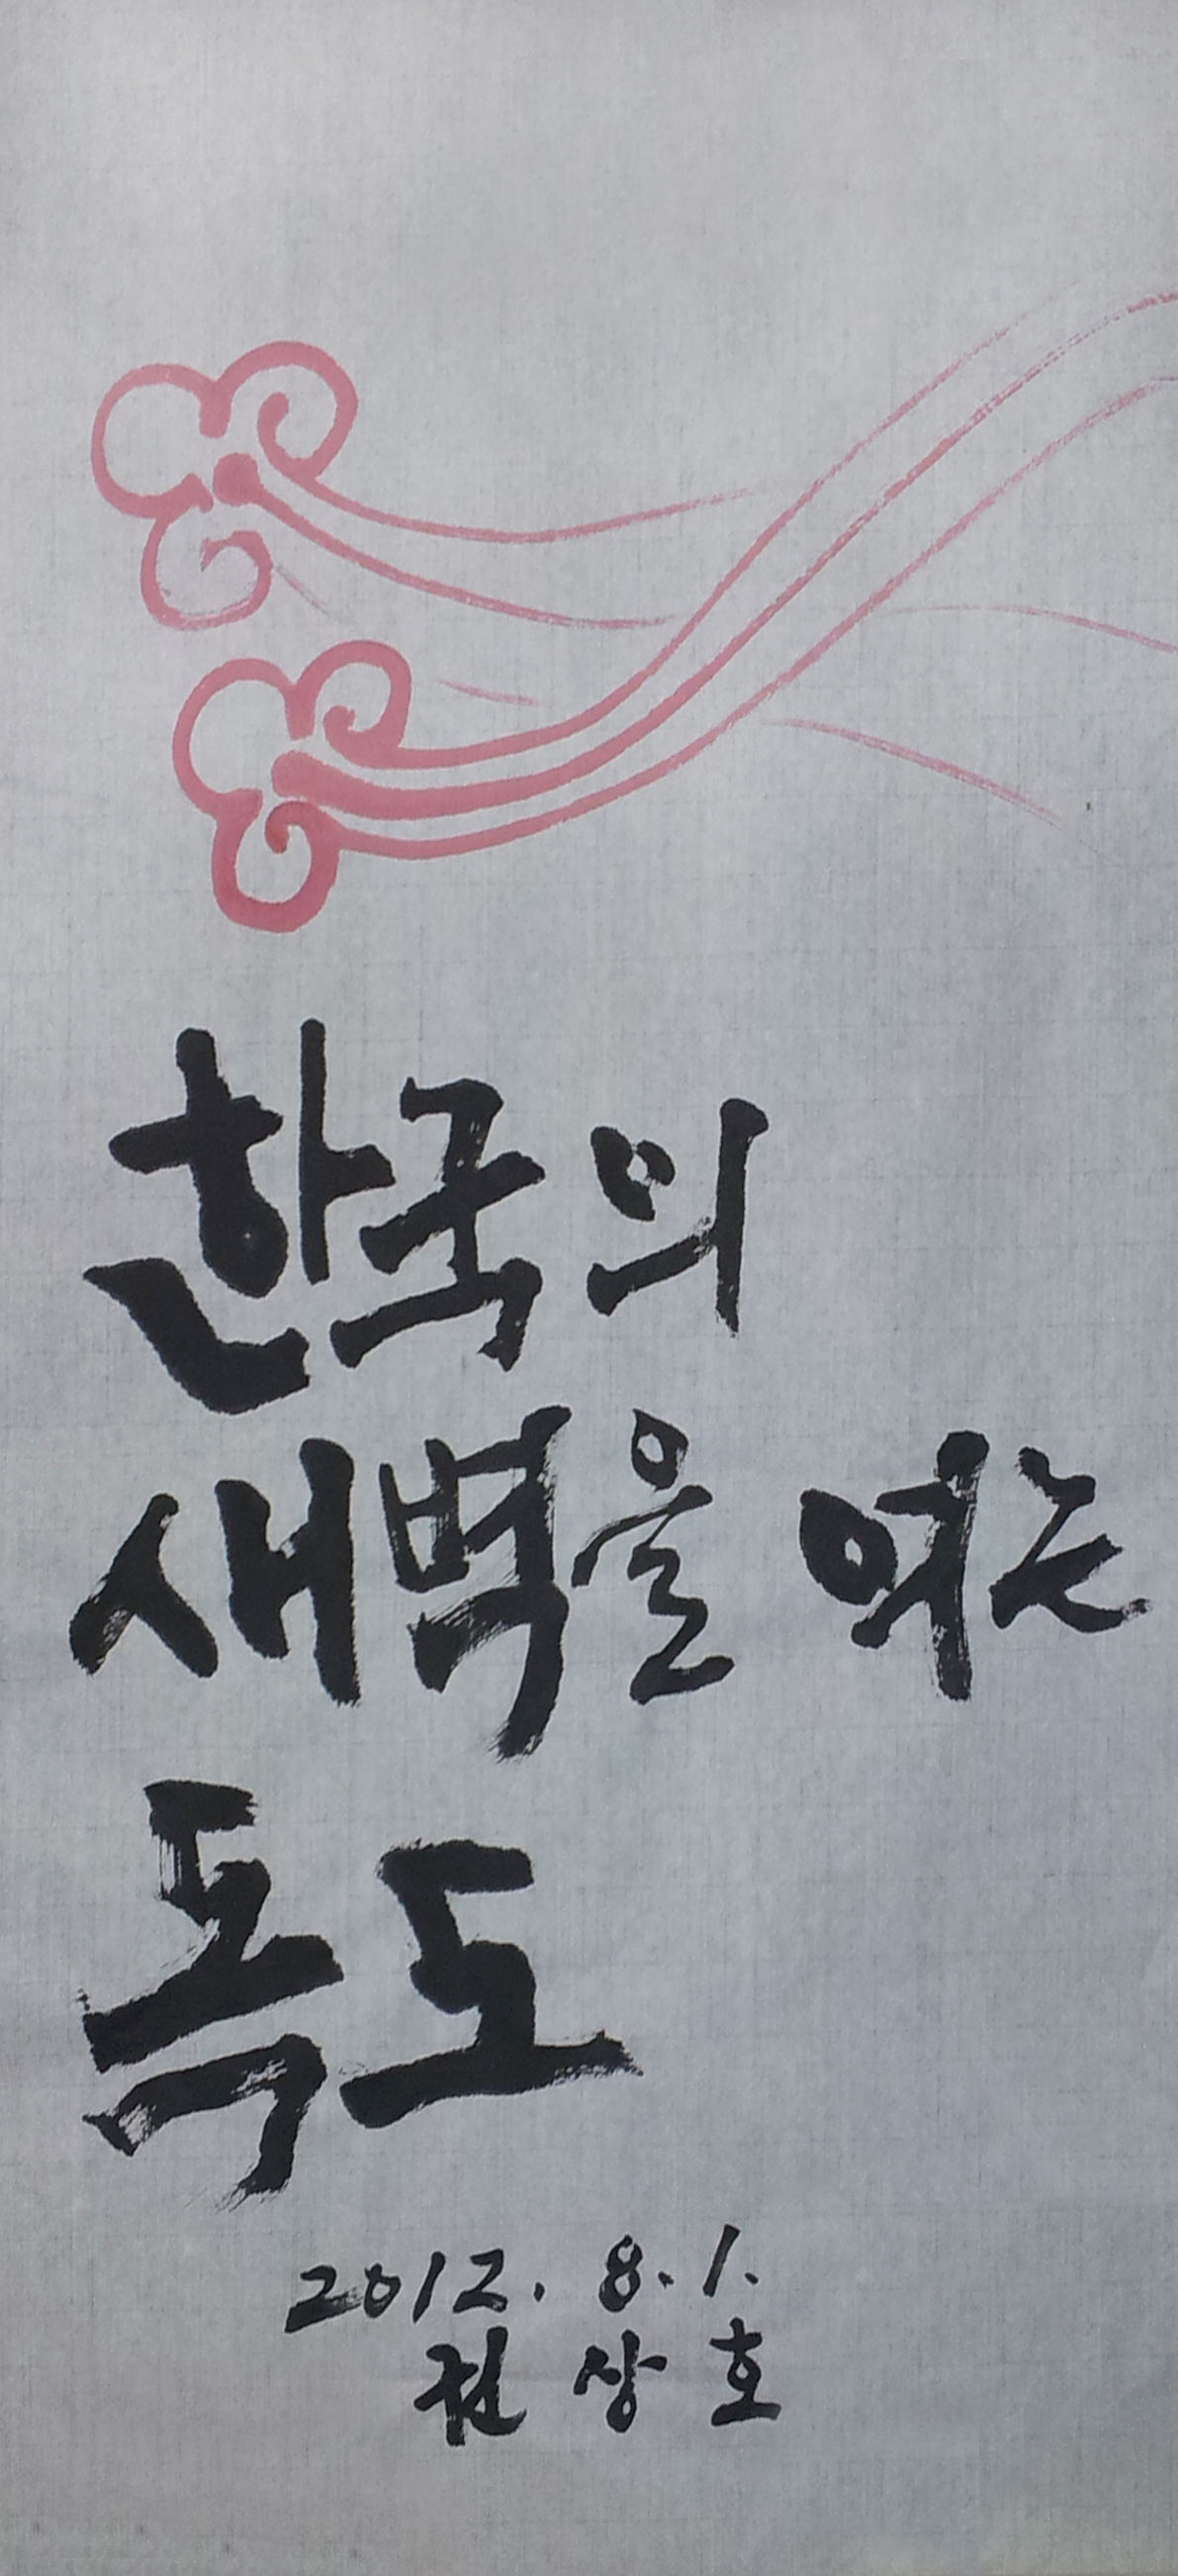 한국의
새벽을 여는
독도
2012. 8. 1.
권 상 호